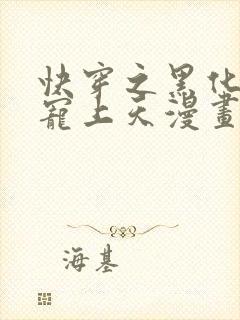 快穿之黑化
寵上天漫畫
海基